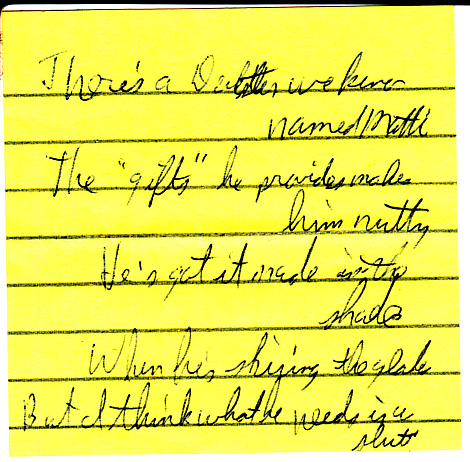 There's a Dubster we know
named Matti
The "gifts" he provides makes
him nutty
He's got it made in the
shade
When he's skiing the glade
But I think what he needs is a
slutt